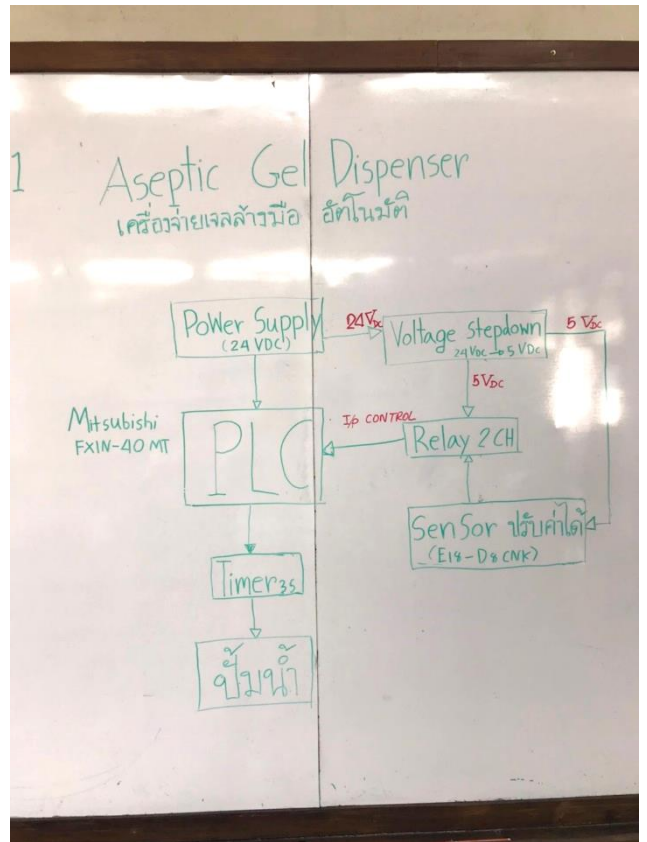 1 Aseptic Gel Dispenser
เครื่องจ่ายเจลล้างมือ อัตโนมัติ
Power Supply
(24 VDC)
24VDC
Voltage Stepdown
24VDC → 5VDC
5VDC
5VDC
Mitsubishi
FX1N-40 MT
PLC
I/p CONTROL
Relay 2 CH
Sensor ปรับค่าได้
(E18-D8(NK)
Timer 3s
ปั๊มน้ำ